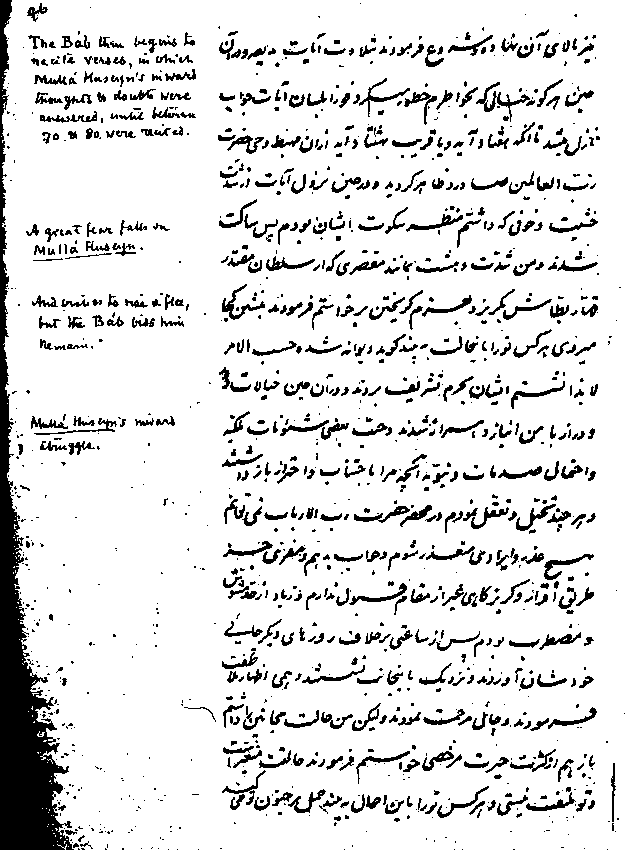 The Báb then begins to
recite verses, in which
Mullá Huseyn's inward
thoughts & doubts were
answered, until between
70 & 80 were recited.
A great fear falls on
Mullá Huseyn.
And wishes to rise & flee,
but the Báb bids him
remain.
Mullá Huseyn's inward
struggle.
نیز بالای آن نهاده و شروع فرمودند بتلاوت آیات
حین هرگونه خیالی که بخاطرم خطور میکرد فوراً بلسان آیات جواب
نازل میشد تا آنکه هفتاد آیه و یا قریب هشتاد آیه از آن مهبط وحی حضرت
رب العالمین صادر و ظاهر گردید و در حین نزول آیات از شدت
خشیت و خوفی که داشتم منتظر سکوت ایشان بودم پس ساکت
شدند و من از شدت وحشت بمانند مقصری که از سلطان مقتدر
قهار بگریزد بعزم گریختن برخواستم فرمودند بنشین کجا
میروی هر کس تو را باینحالت به بیند گوید دیوانه شده حسب الامر
لابداً نشستم ایشان بحرم تشریف بردند و در آن حین خیالات
و دراز با من انباز و همراز شدند و حب بعضی شئونات ملکیه
و احتمال صدمات دنیویه مرا باجتناب و احتراز باز
و هر چند تخیل و تعقل نمودم در محضر حضرت رب الارباب نمی توانم
بهیچ عذر و ایرادی متعذر شوم و جواب بدهم و مفری جز
طریق اقرار و گریزگاهی غیر از مقام قبول ندارم و زیاد از حد مشوش
و مضطرب بودم پس از ساعتی برخلاف روزهای دیگر چای
خودشان آوردند و نزدیک باینجانب نشستند و همی اظهار ملاطفت
فرمودند و چای مرحمت نمودند ولیکن من حالت
باز هم از کثرت حیرت مرخصی خواستم فرمودند حالت
و تو ملتفت نیستی و هر کس تو را باین احوال به بیند حمل بر جنون تو می